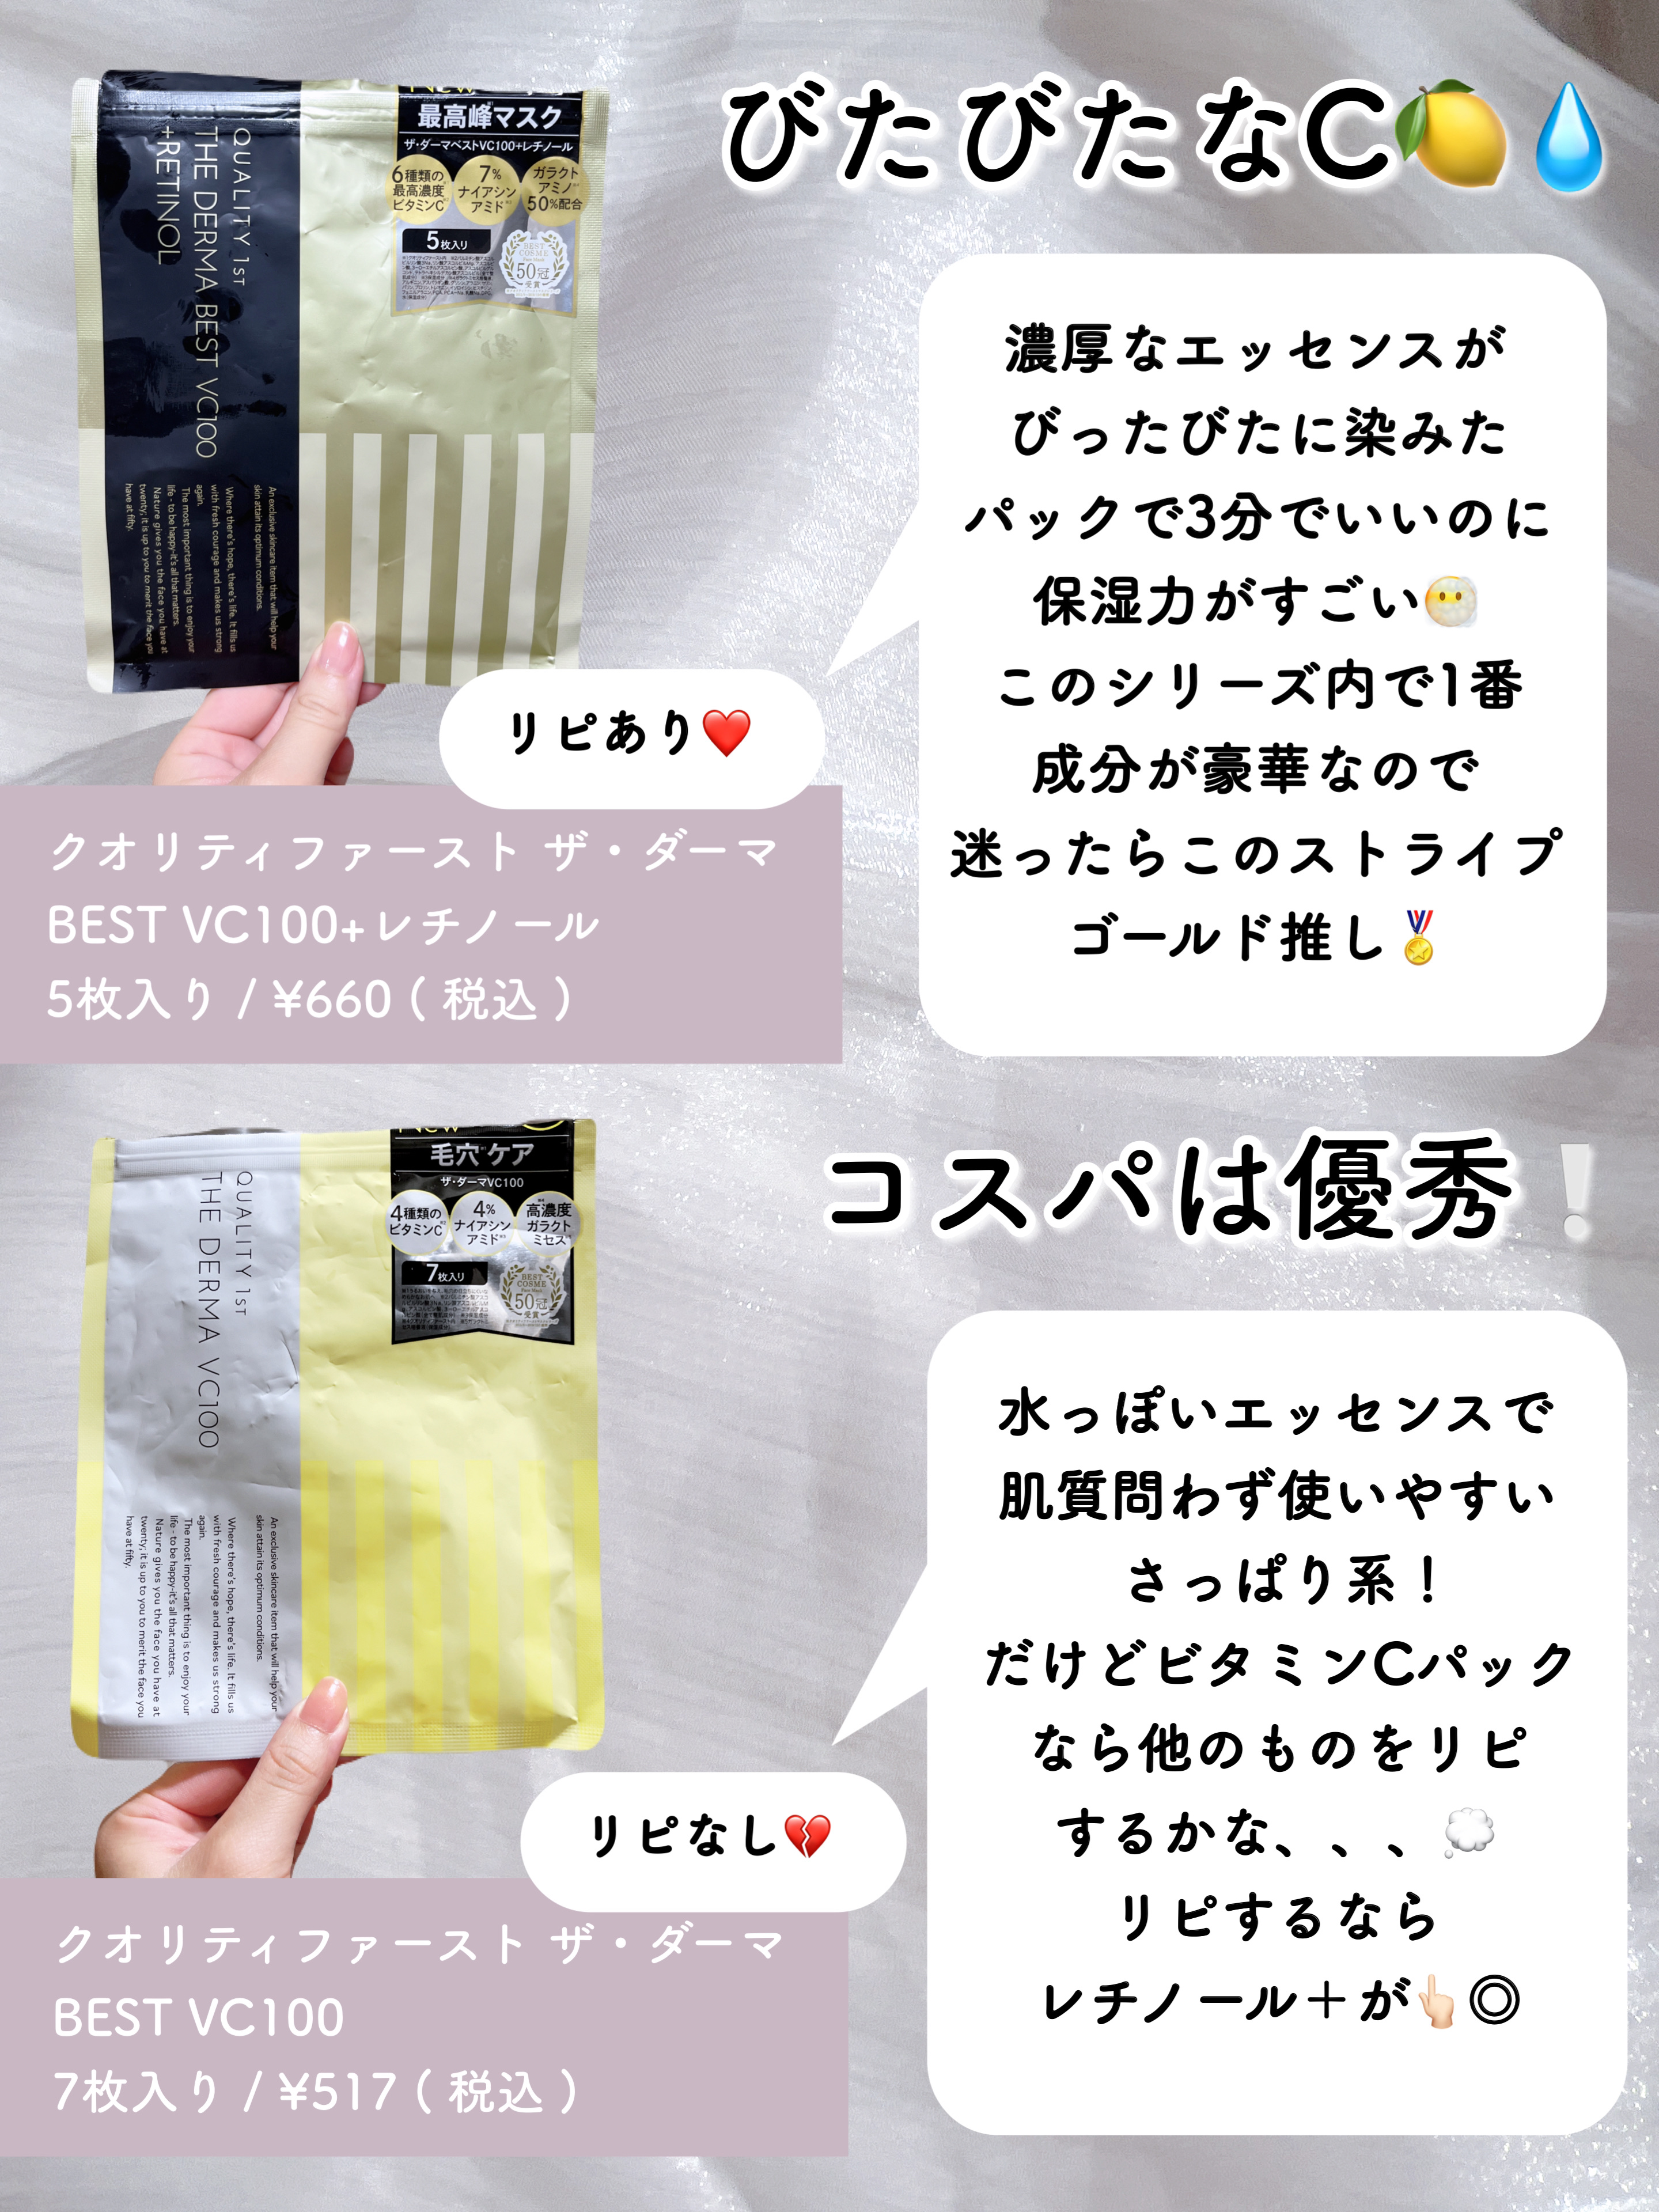 びたびたなC🍋💧
New
最高峰マスク
ザ・ダーマベストVC100+レチノール
6種類の
最高濃度
ビタミンC
7%
ナイアシン
アミド
ガラクト
アミノ
50%配合
5枚入り
BEST
COSME
Face Mask
50冠
受賞
QUALITY 1ST
THE DERMA BEST VC100
+RETINOL
An exclusive skincare item that will help your
skin attain its optimum conditions.
Where there's hope, there's life. It fills us
with fresh courage and makes us strong
again.
The most important thing is to enjoy your
life - to be happy-it's all that matters.
Nature gives you the face you have at
twenty; it is up to you to merit the face you
have at fifty.
濃厚なエッセンスが
びったびたに染みた
パックで3分でいいのに
保湿力がすごい
このシリーズ内で1番
成分が豪華なので
迷ったらこのストライプ
ゴールド推し🏅
リピあり❤️
クオリティファースト ザ・ダーマ
BEST VC100+レチノール
5枚入り / ¥660 ( 税込 )
コスパは優秀❕
New
毛穴ケア
ザ・ダーマVC100
4種類の
ビタミンC
4%
ナイアシン
アミド
高濃度
ガラクト
ミセス
7枚入り
BEST
COSME
Face Mask
50冠
受賞
QUALITY 1ST
THE DERMA VC100
An exclusive skincare item that will help your
skin attain its optimum conditions.
Where there's hope, there's life. It fills us
with fresh courage and makes us strong
again.
The most important thing is to enjoy your
life - to be happy-it's all that matters.
Nature gives you the face you have at
twenty; it is up to you to merit the face you
have at fifty.
水っぽいエッセンスで
肌質問わず使いやすい
さっぱり系！
だけどビタミンCパック
なら他のものをリピ
するかな、、、💭
リピするなら
レチノール＋が👆🏻◎
リピなし💔
クオリティファースト ザ・ダーマ
BEST VC100
7枚入り / ¥517 ( 税込 )